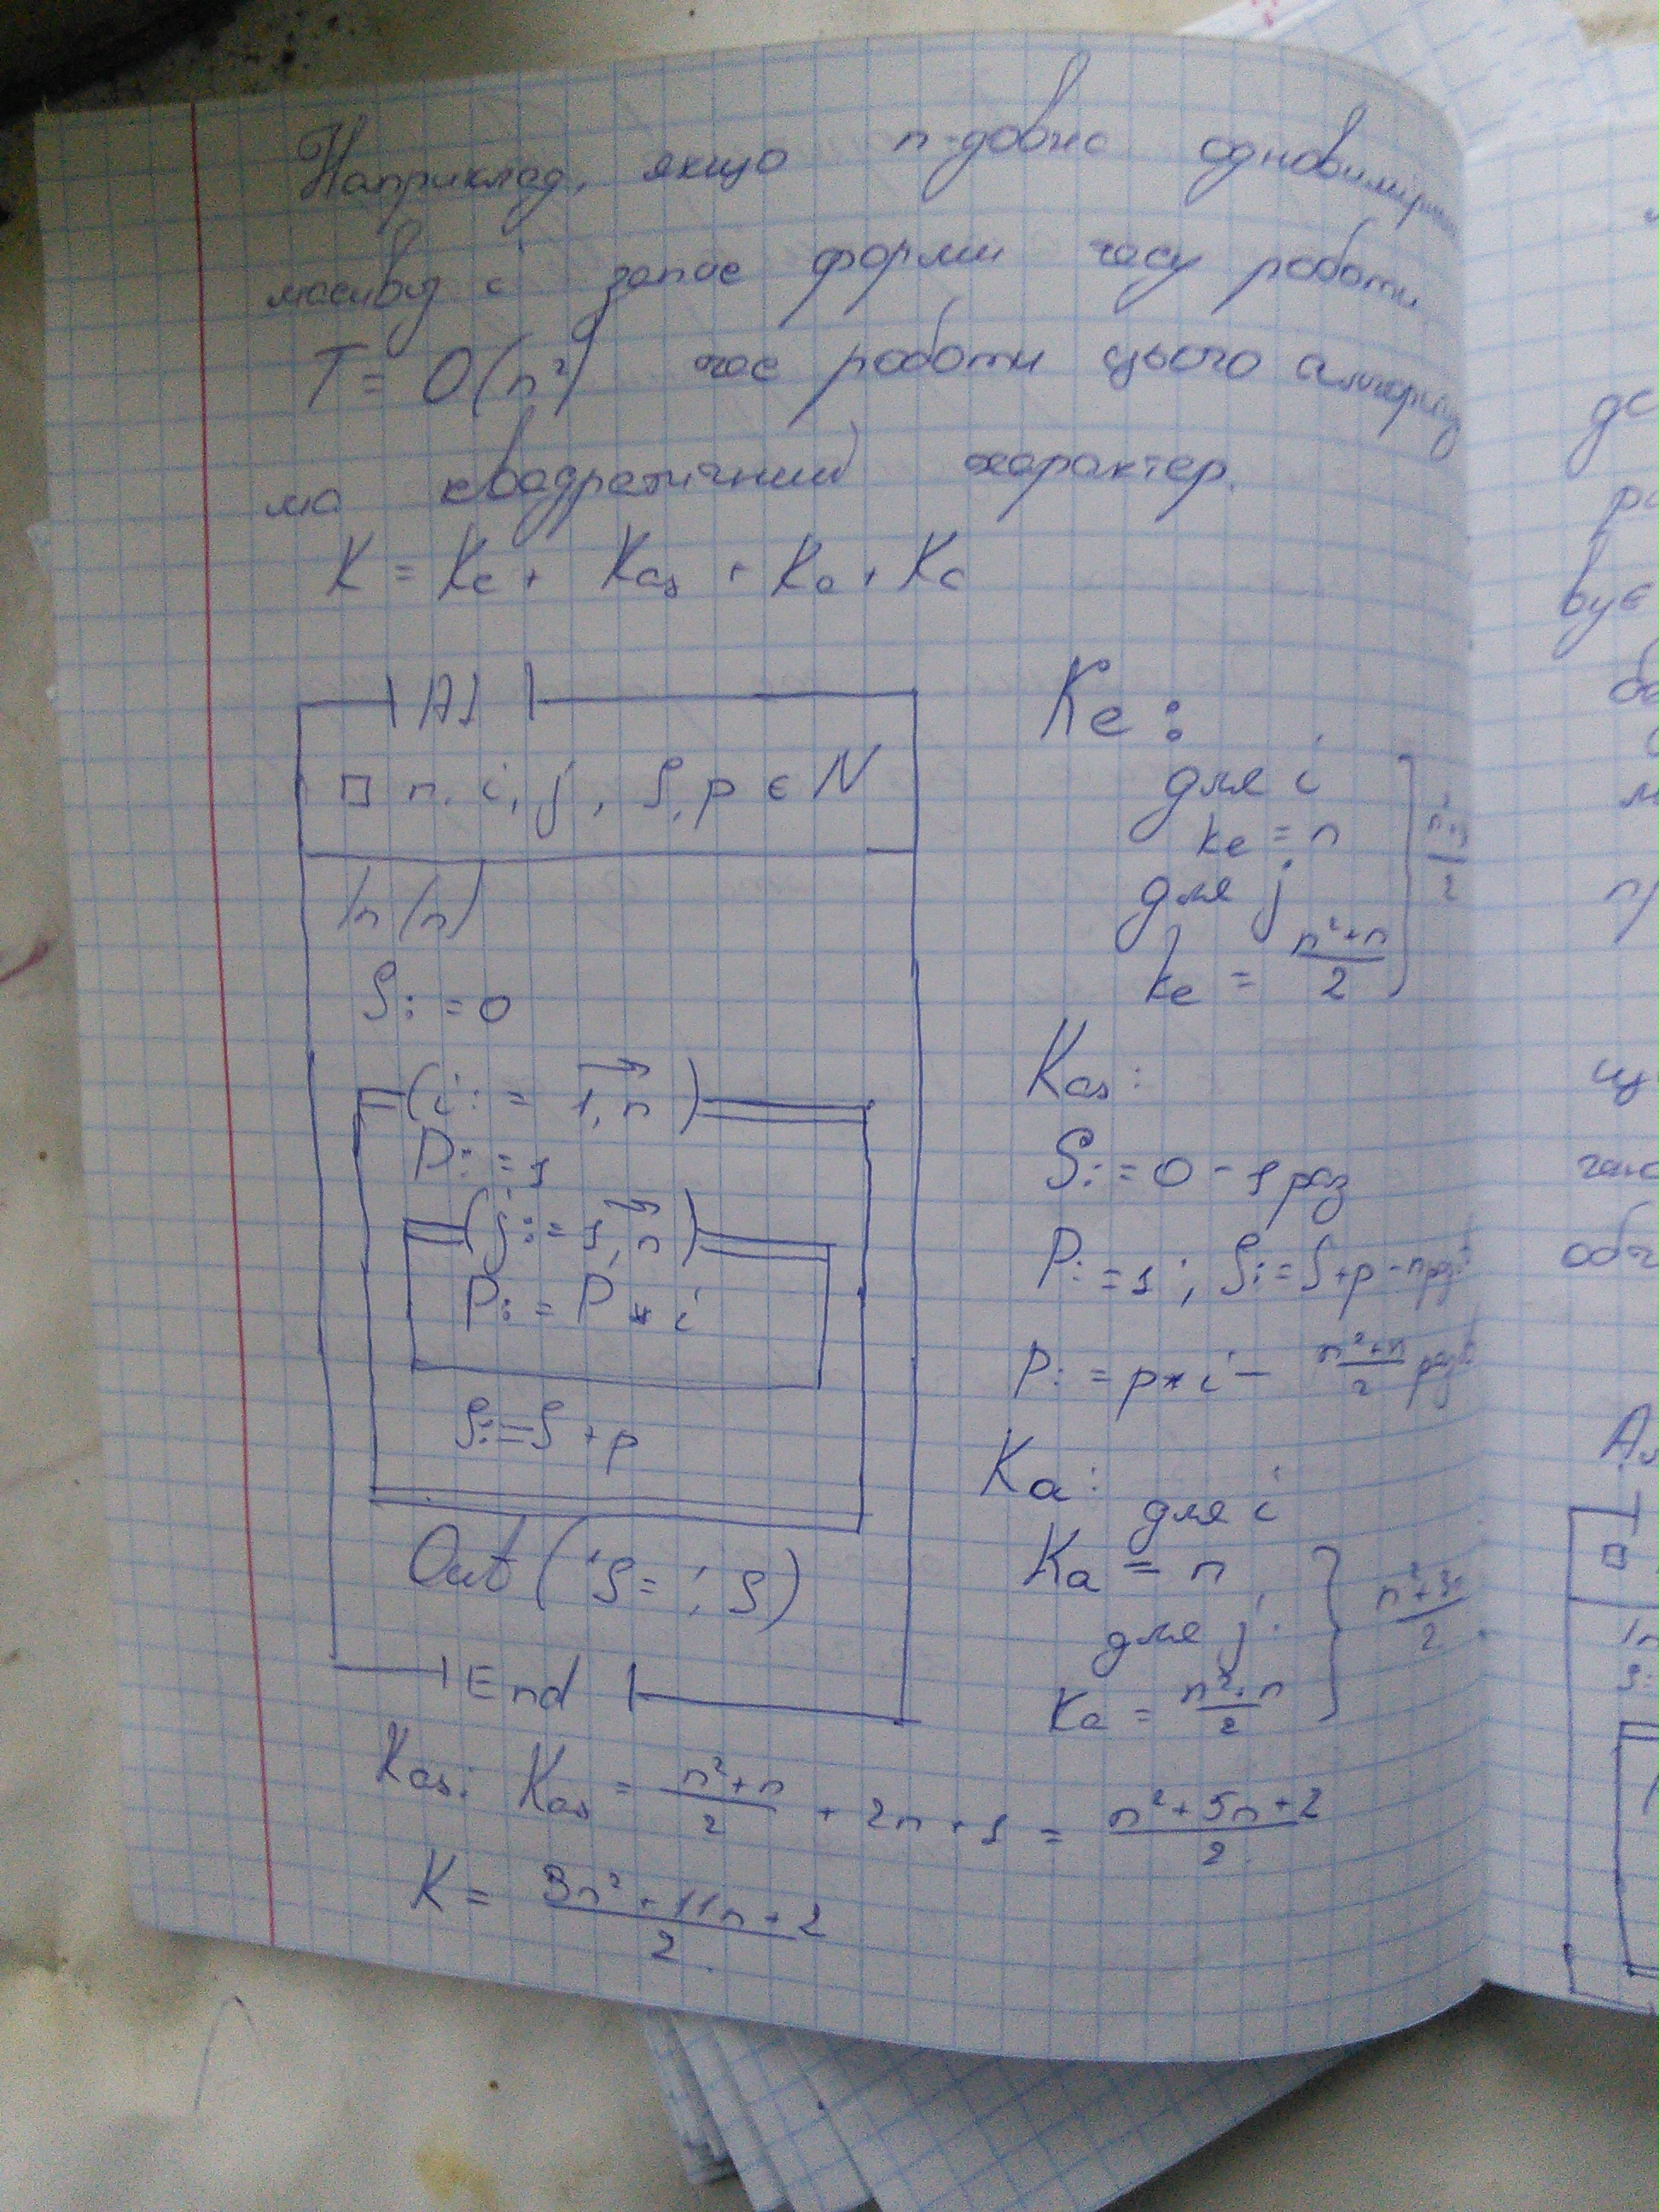 Наприклад, якщо n-довж одновимірн
масиву і запис форми часу роботи
T = O(n²) час роботи цього алгорит
ма квадратичний характер.
K = Ke + Kas + Ka + Kc
A1
□ n, i, j, S, p ∈ N
In (n)
S := 0
(i := 1, n)
P := 1
(j := 1, n)
P := P * i
S := S + p
Out ('S = '; S)
End
Ke :
для i
ke = n
для j
ke = (n²+n)/2
Kas:
S := 0 - 1 раз
P := 1 ; S := S+p - n раз
P := p * i - (n²+n)/2 раз
Ka:
для i
Ka = n
для j
Ka = (n²+n)/2
(n²+3n)/2
Kas: Kas = (n²+n)/2 + 2n + 1 = (n²+5n+2)/2
K = (3n²+11n+2)/2